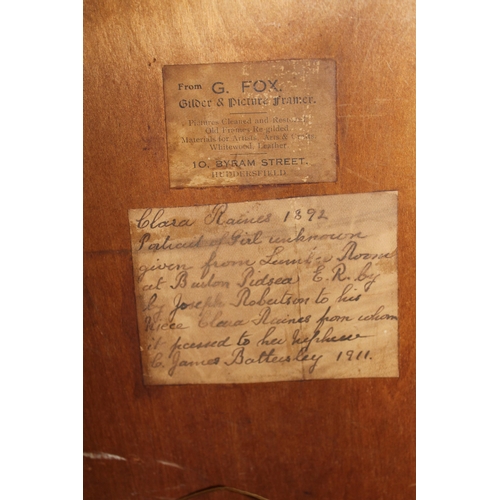 From G. FOX,
Gilder & Picture Framer.
Pictures Cleaned and Restored
Old Frames Re-gilded
Materials for Artists, Arts & Crafts
Whitewood, Leather
10, BYRAM STREET,
HUDDERSFIELD
Clara Raines 1892
Portrait of Girl unknown
given from Room
at Burton Pidsea E.R. by
by Joseph Robertson to his
Niece Clara Raines from whom
it passed to her Nephew
C. James Battersley 1911.